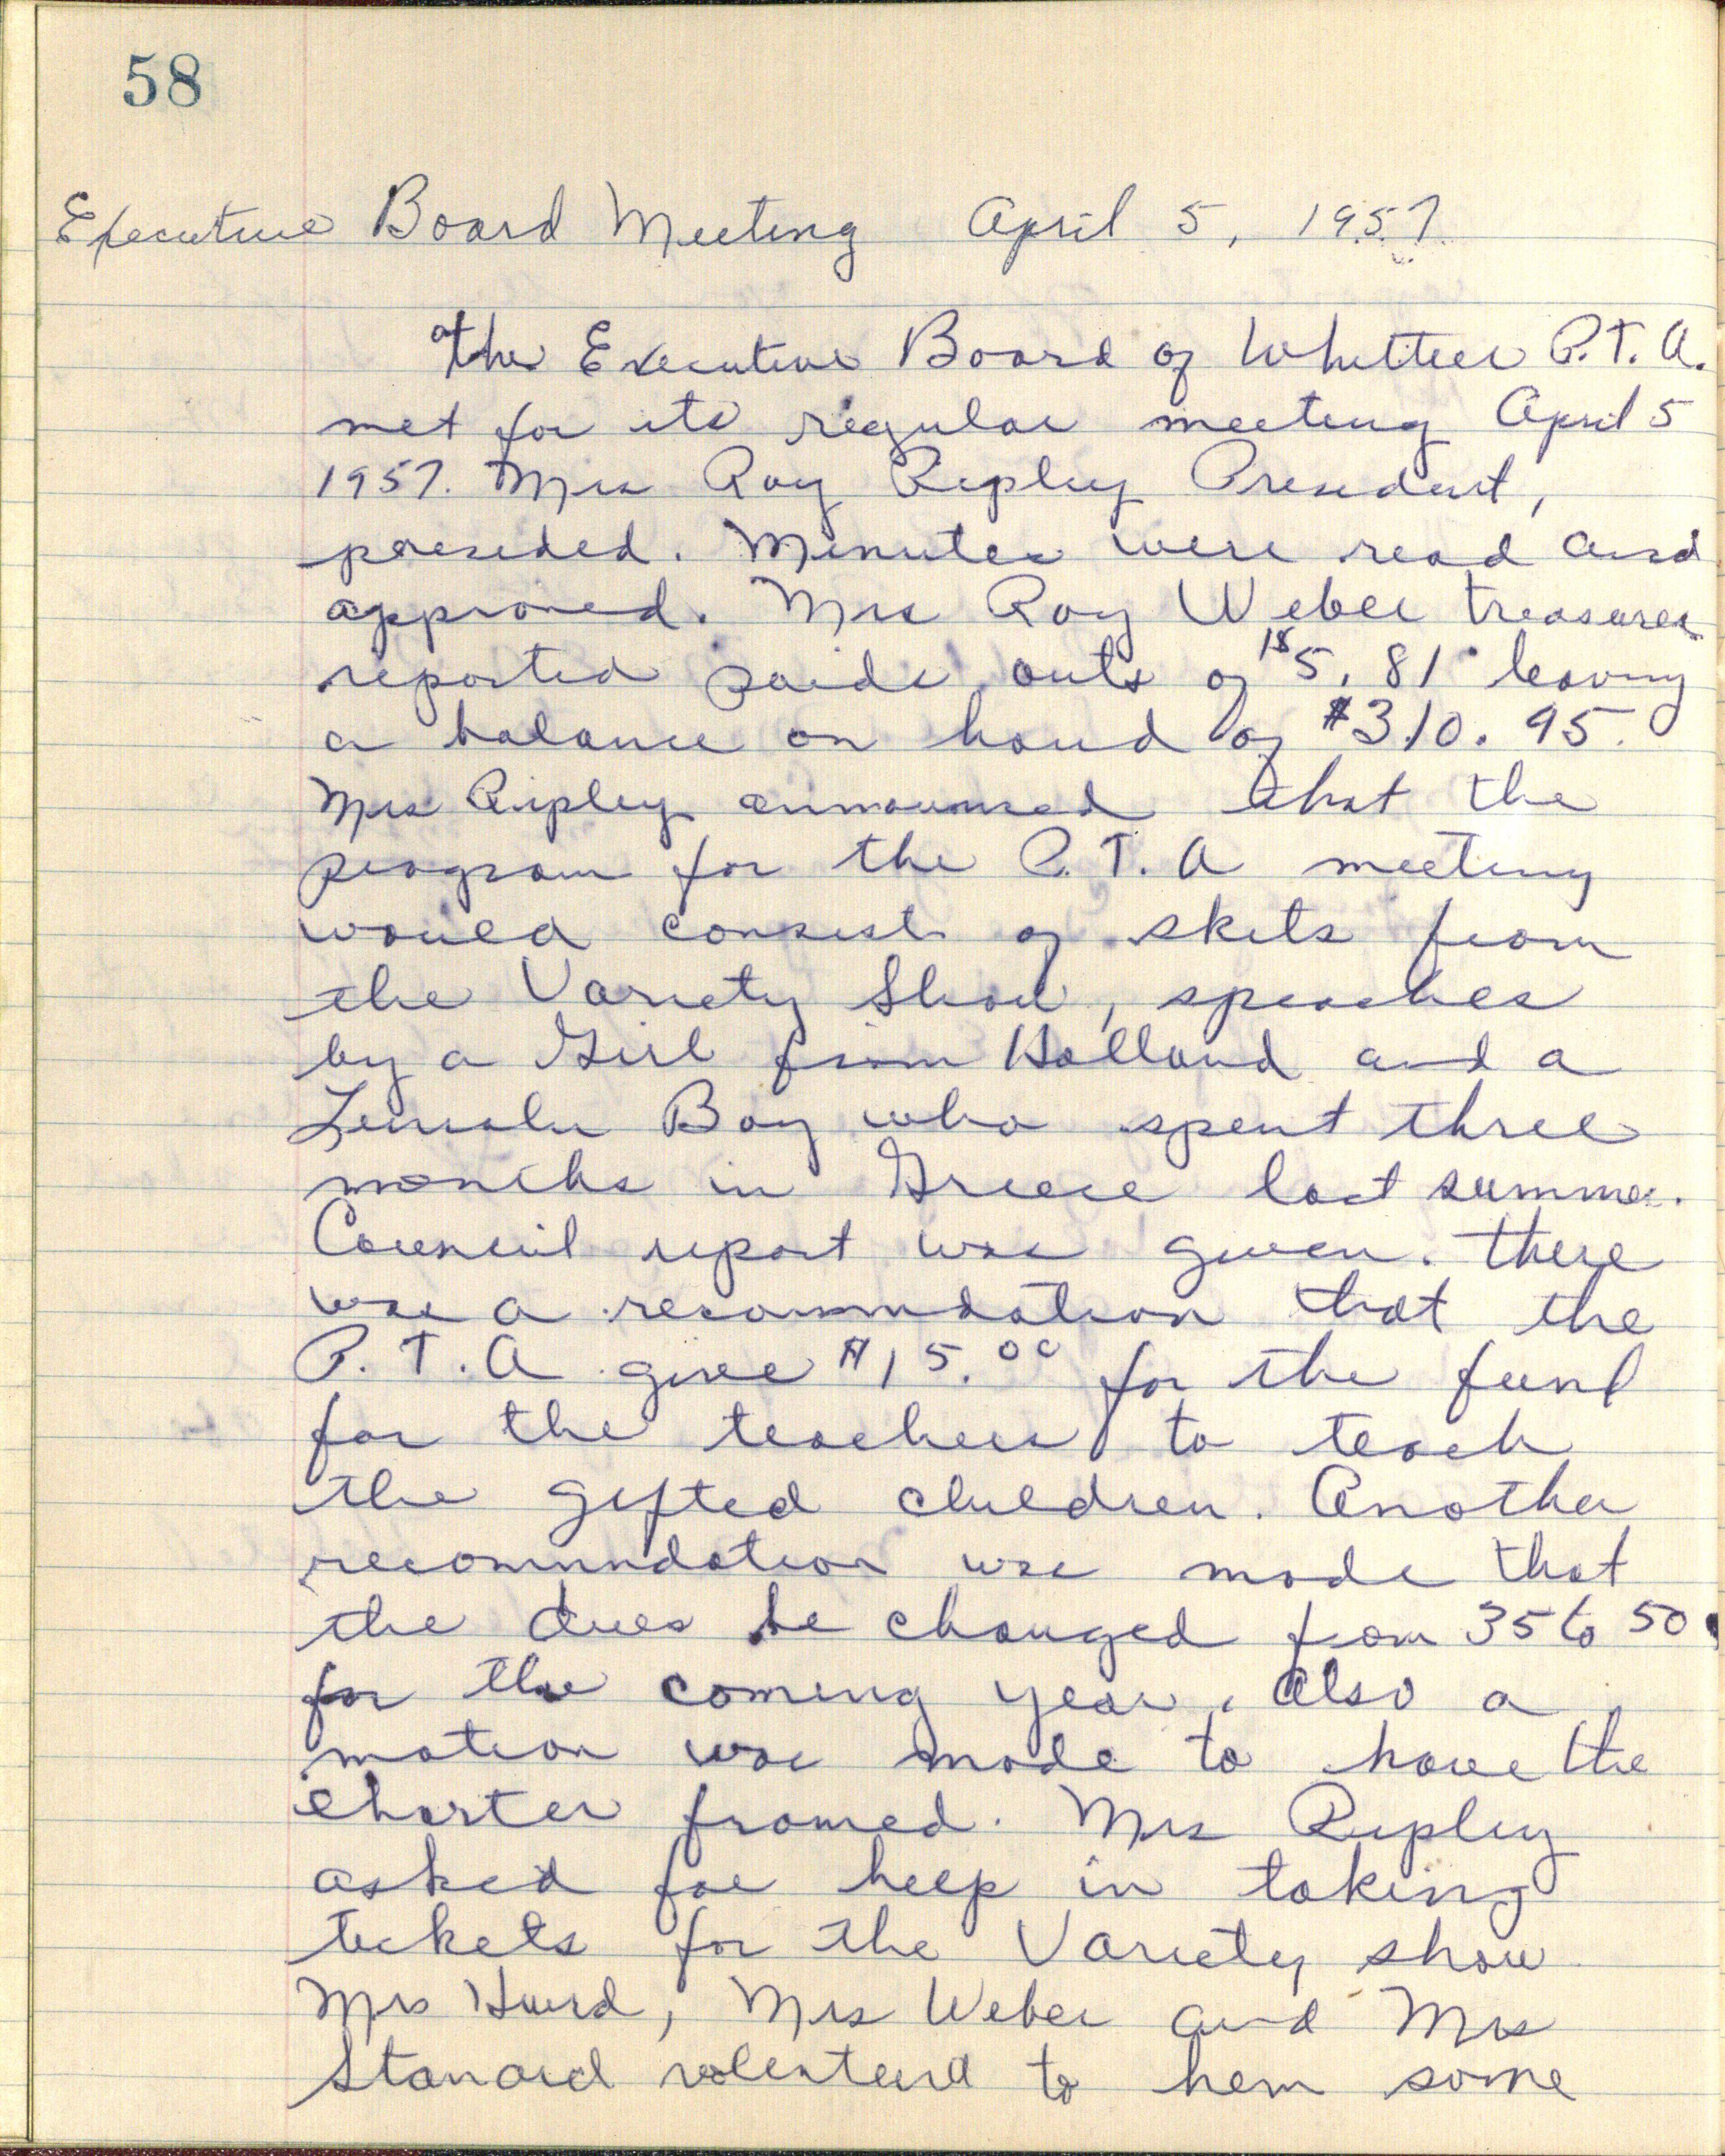 58
Executive Board Meeting April 5, 1957.
The Executive Board of Whittier P.T.A.
met for its regular meeting April 5
1957. Mrs Roy Ripley President,
presided. Minutes were read and
approved. Mrs Roy Weber treasurer
reported paide outs of 5.81 leaving
a balance on hand of $310.95.
Mrs Ripley announced that the
program for the P.T.A meeting
would consist of skits from
the Variety Show, speaches
by a Girl from Holland and a
Lincoln Boy who spent three
months in Greece last summer.
Council report was given. There
was a recommdation that the
P.T.A give $15.00 for the fund
for the teachers to teach
the gifted children. Another
recommndation was made that
the dues be changed from 35 to 50
for the coming year. Also a
motion was made to have the
charter framed. Mrs Ripley
asked for help in taking
tickets for the Variety show
Mrs Hurd, Mrs Weber and Mrs
Stanard volenteerd to hem some